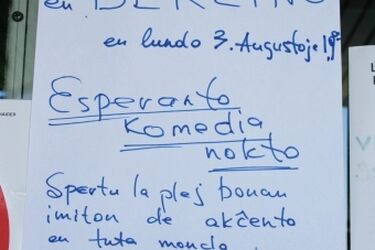 en BERLINO
en lundo 3. Augusto je 19ª
Esperanto
Komedia
nokto
Spertu la plej bonan
imiton de akĉento
en tuta mondo